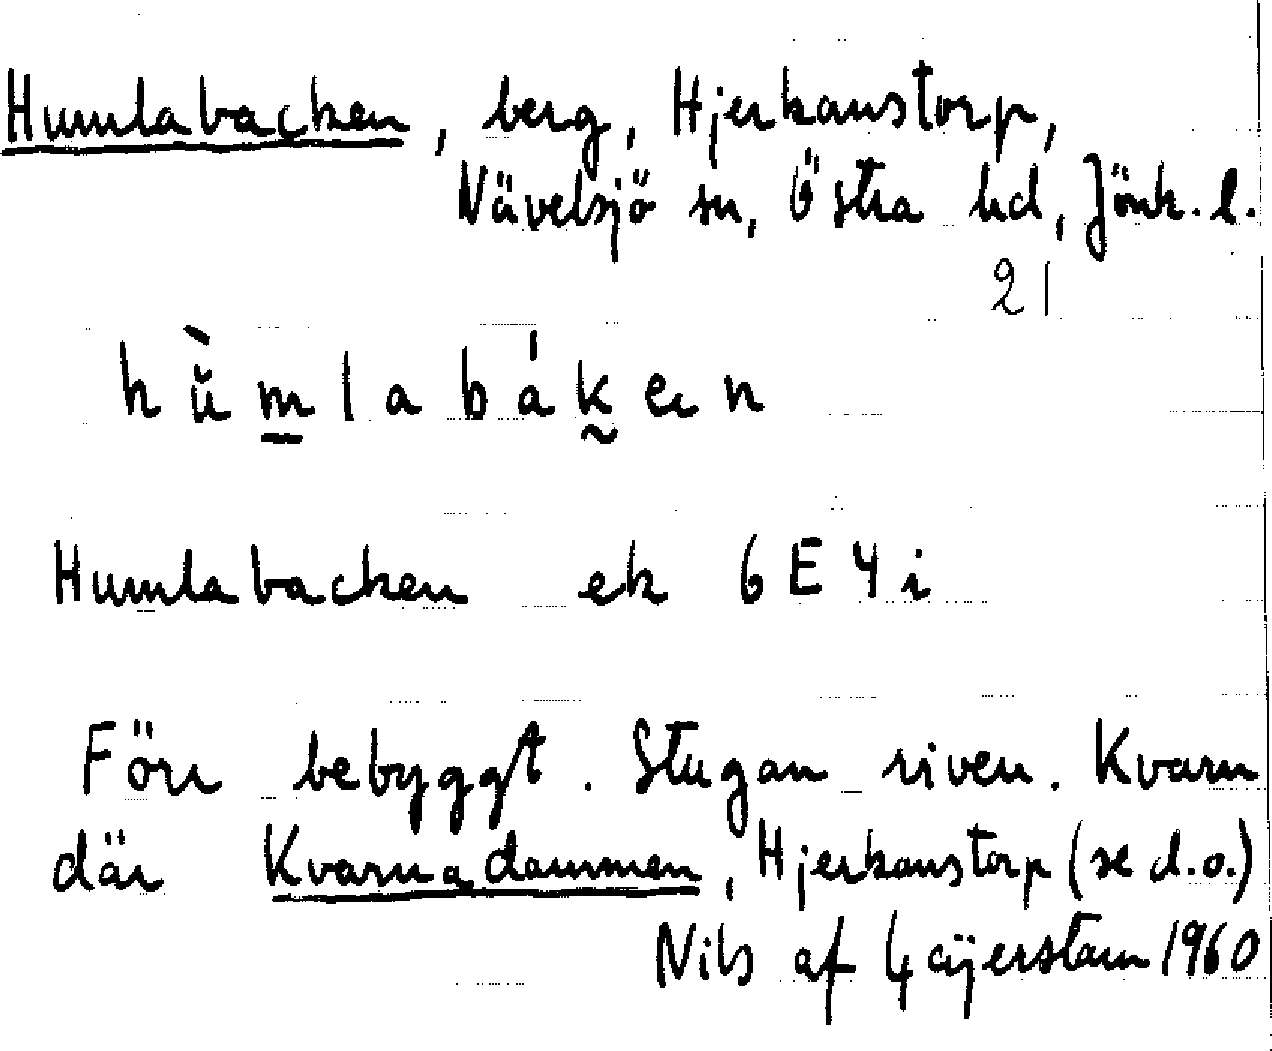 Humlabacken, berg, Hjerkanstorp,
Nävelsjö sn, Östra hd, Jönk. l.
21
hùmlabáken
Humlabacken ek 6E4i
Förr bebyggt. Stugan riven. Kvarn
där Kvarnadammen, Hjerkanstorp (se d.o.)
Nils af Geijerstam 1960